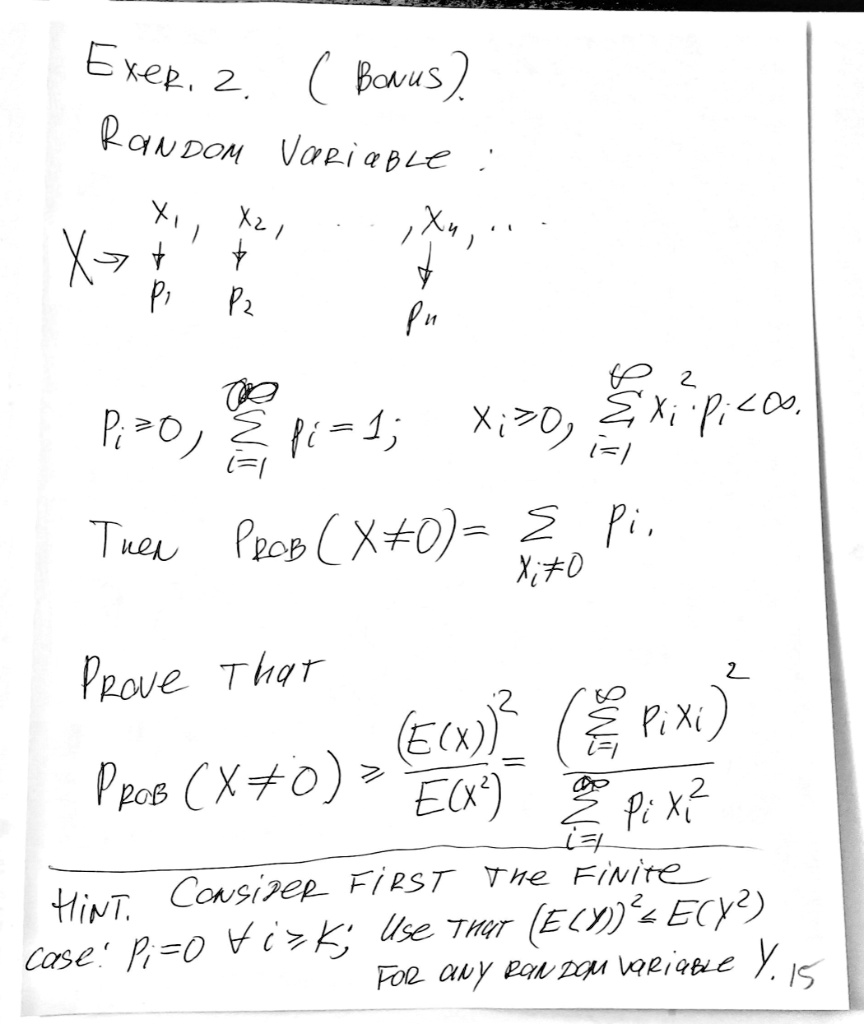 Exer. 2. (Bonus).
Random Variable:
X → x₁, x₂, ..., xₙ, ...
↓ ↓ ↓
p₁ p₂ pₙ
Pᵢ ≥ 0, ∑_{i=1}^{∞} pᵢ = 1; xᵢ ≥ 0, ∑_{i=1}^{∞} xᵢ² · pᵢ < ∞.
Then Prob (X ≠ 0) = ∑_{xᵢ ≠ 0} pᵢ.
Prove that
Prob (X ≠ 0) ≥ (E(X))² / E(X²) = (∑_{i=1}^{∞} pᵢ xᵢ)² / ∑_{i=1}^{∞} pᵢ xᵢ²
Hint. Consider first the finite
case: pᵢ = 0 ∀ i ≥ K; Use that (E(Y))² ≤ E(Y²)
for any random variable Y. 15